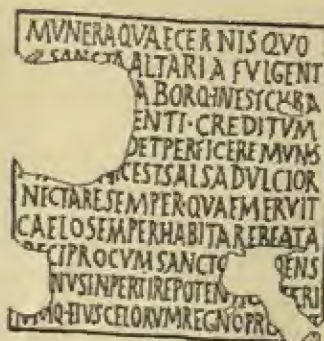 MVNERA QVAE CERNIS QVO
SANCTA ALTARIA FVLGENT
A
ENTI·CREDITVM
DET PERFICERE MVNS
EST SALSA DVLCIOR
NECTARE SEMPER QVAE MERVIT
CAELO SEMPER HABITARE BEATA
RECIPROCVM SANCTO ENS
NVS INPERTIRE POTEN ERI
Q·EIVS CELORVM REGNO PR